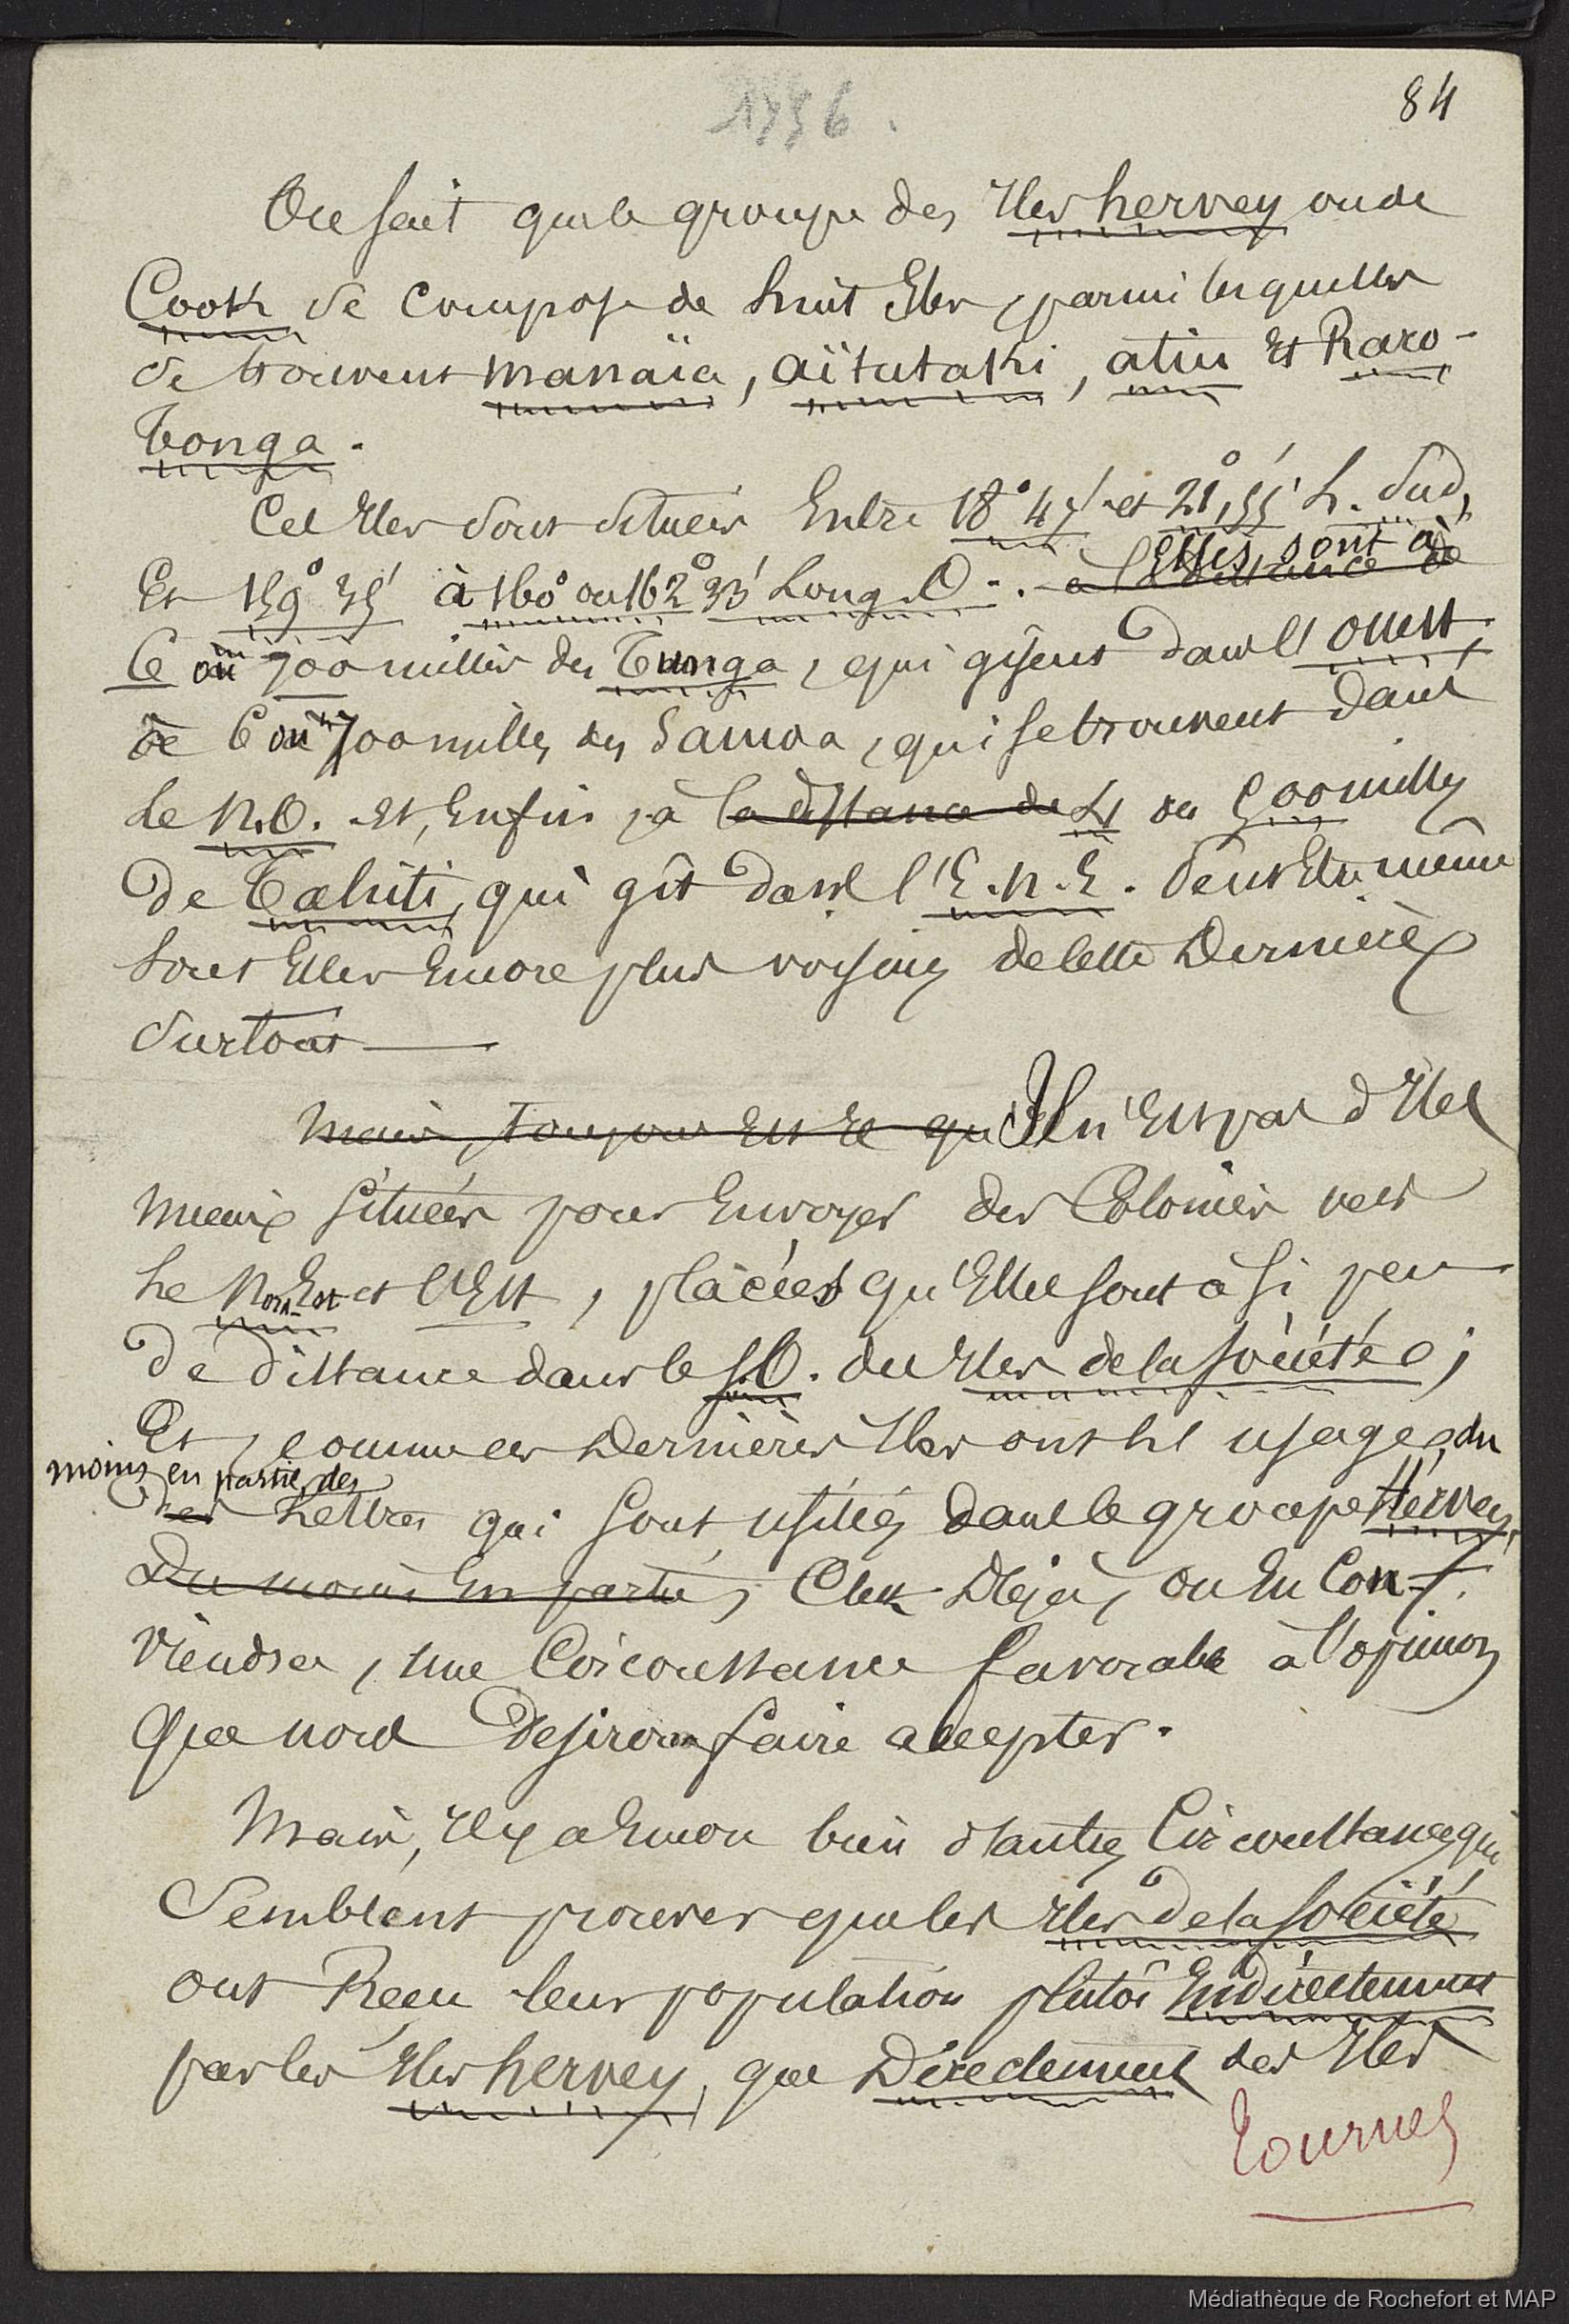 1756.
84
On sait que le groupe des Iles hervey ou de
Cook se compose de huit Iles, parmi lesquelles
se trouvent manaïa, aïtutaki, atiu et Raro-
Tonga.
Ces Iles sont situées Entre 18° 4' et 21°,55' L. Sud,
Et 159° 35' à 160° ou 162° 33' Long. O. à la distance de Elles sont à
6 ou 700 milles des Tunga, qui gisent dans l'ouest,
à 6 ou 700 milles des Samoa, qui se trouvent dans
le N.O. Et, Enfin, à la distance de 4 ou 500 milles
de Tahiti, qui gît dans l'E.N.E. Peut Etre même
sont Elles Encore plus voisines de cette Dernière
surtout
mais, toujours Est ce qu' Il n'est pas d'Iles
mieux situées pour Envoyer des Colonies vers
le Nord Est et l'Est, placées qu'Elles sont à si peu
de distance dans le S.O. des Iles de la Société;
Et, comme ces Dernières Iles ont fait usage, du
moins en partie, des
des Lettres qui sont usitées dans le groupe Hervey,
Du moins En partie, C'est Déjà, on En Con-
viendra, une Circonstance favorable à l'opinion
que nous Desirons faire accepter.
Mais, Il y a Encore bien d'autres Circonstances qui
Semblent prouver que les Iles de la Société
ont Reçu leur population plutôt Indirectement
par les Iles hervey, que Directement des Iles
Tournez
Médiathèque de Rochefort et MAP